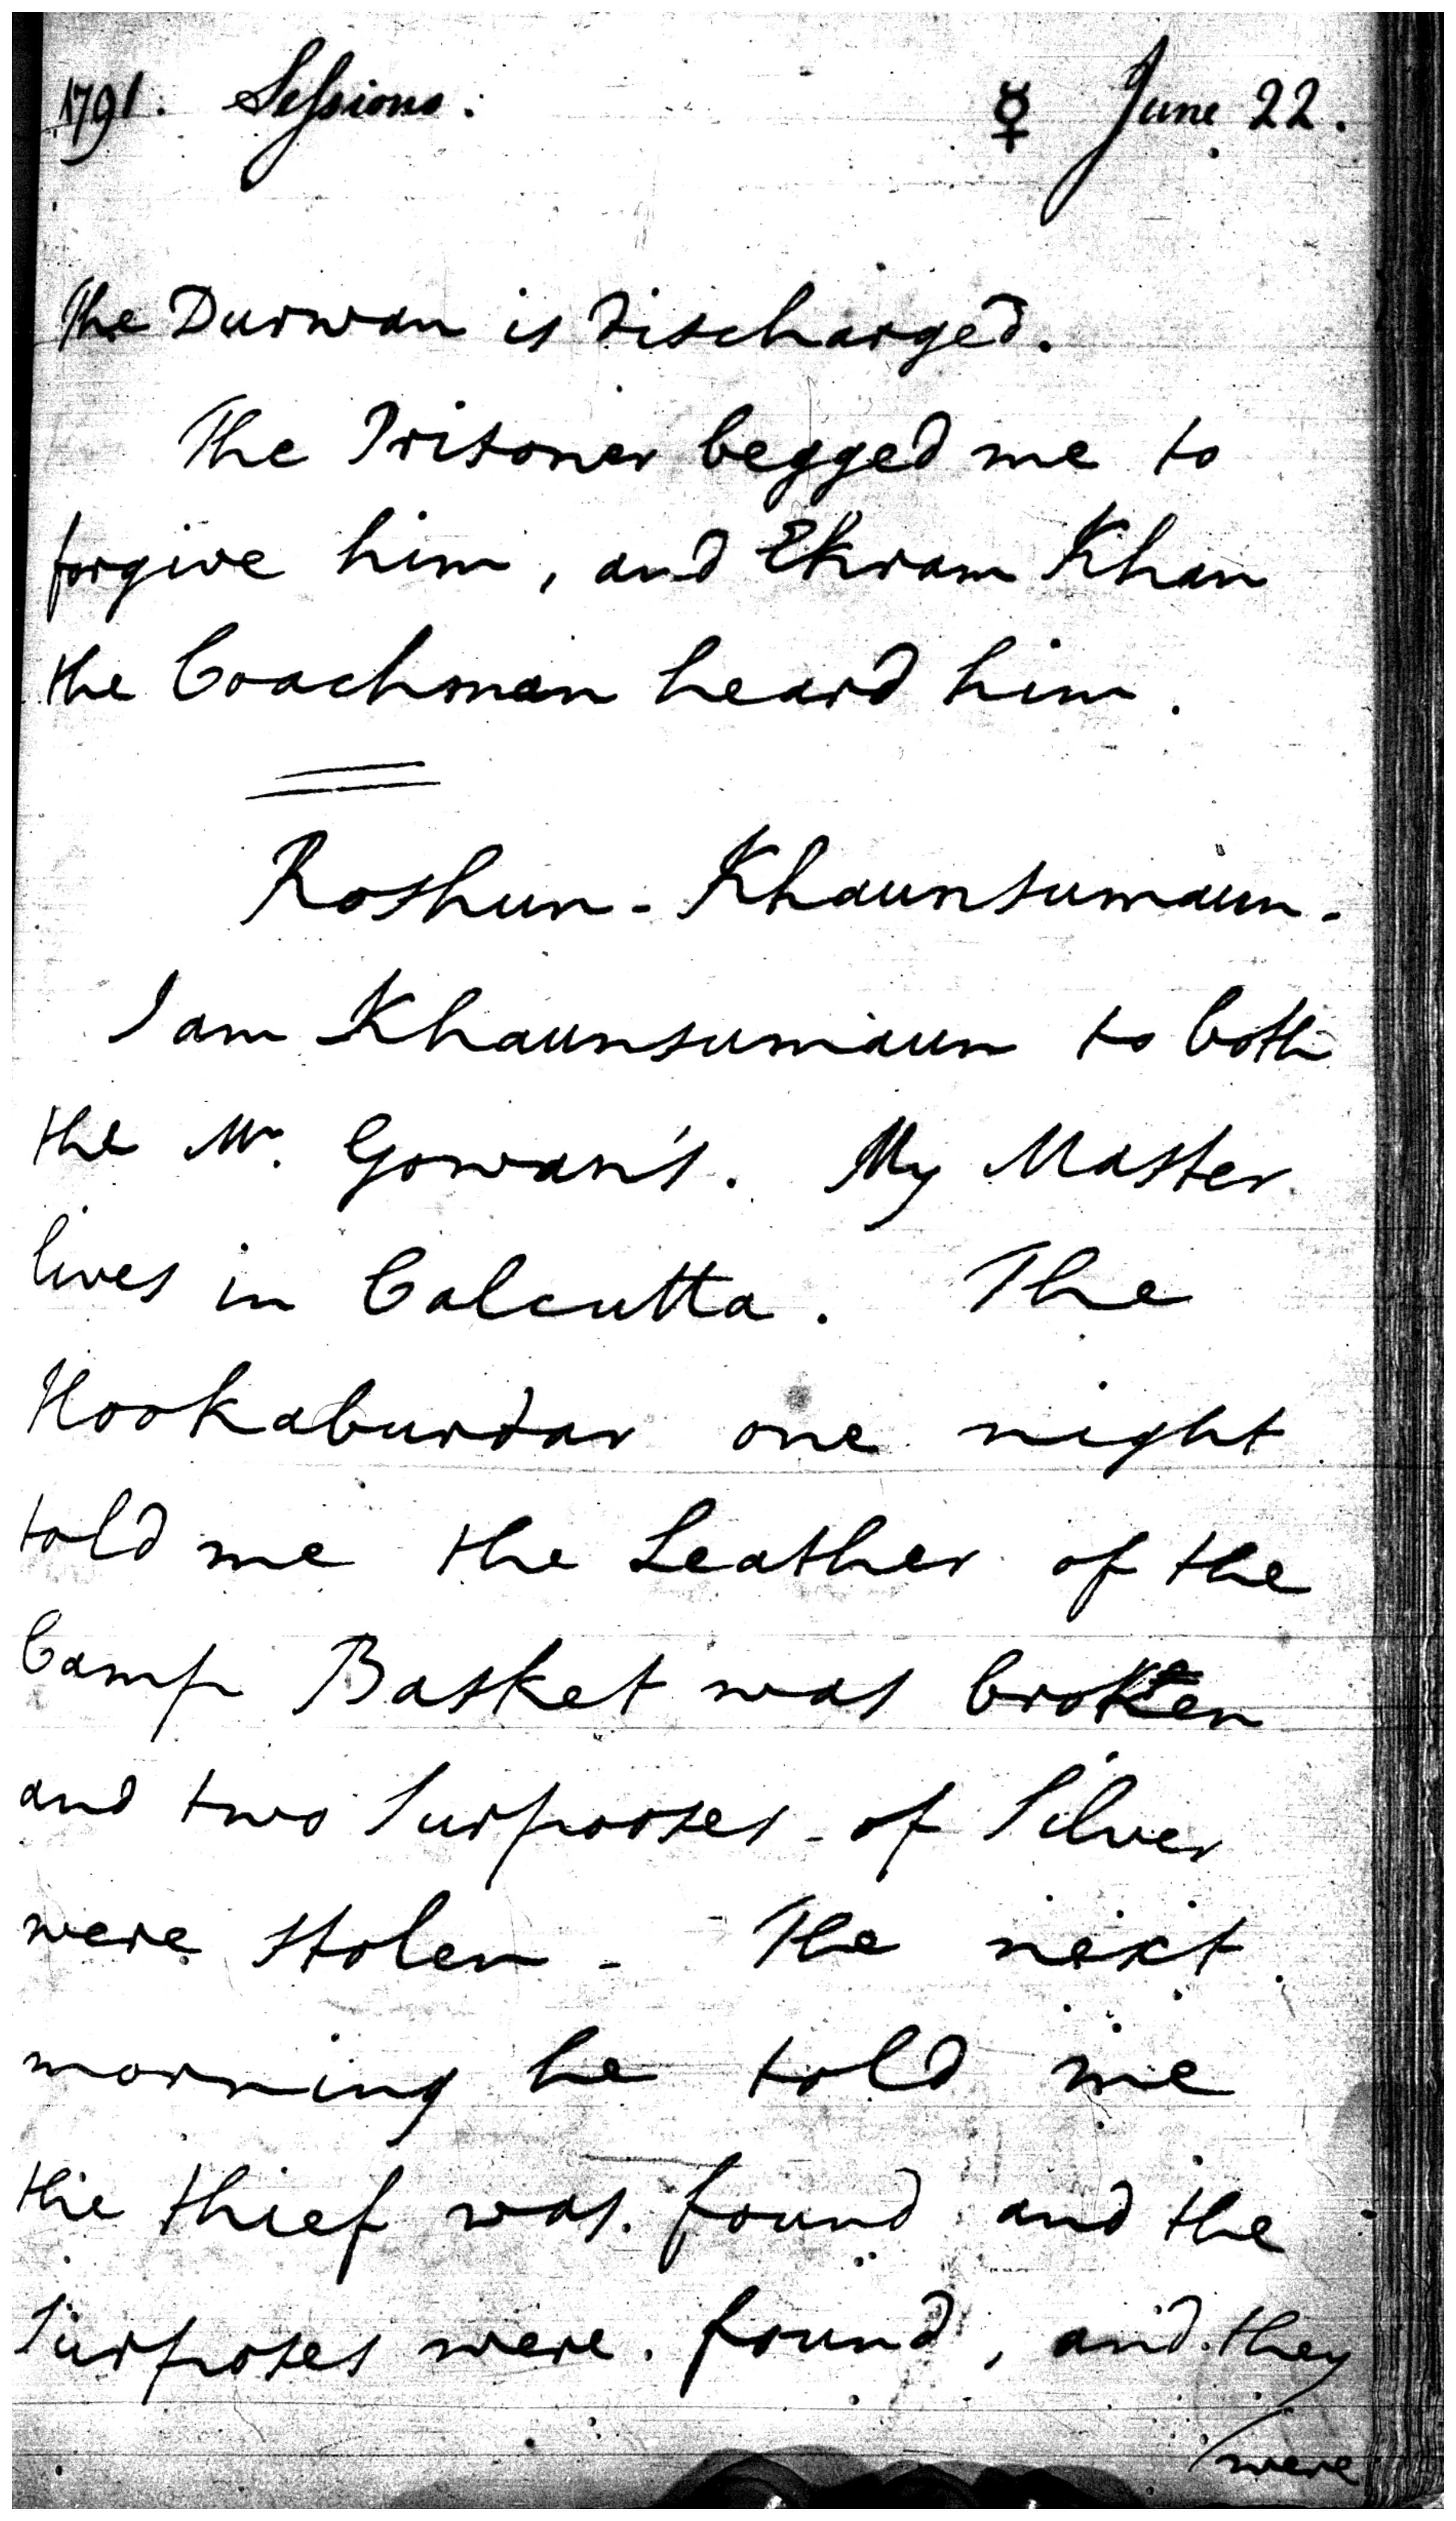 1791. Sessions. ☿ June 22.
The Durwan is discharged.
The Prisoner begged me to
forgive him, and Ekram Khan
the Coachman heard him.
Roshun - Khaunsumaun -
I am Khaunsumaun to both
the Mr. Gowan's. My Master
lives in Calcutta. The
Hookaburdar one night
told me the Leather of the
Camp Basket was broken
and two Surpooses - of Silver
were stolen - The next
morning he told me
the thief was found and the
Surposes were found, and they
were